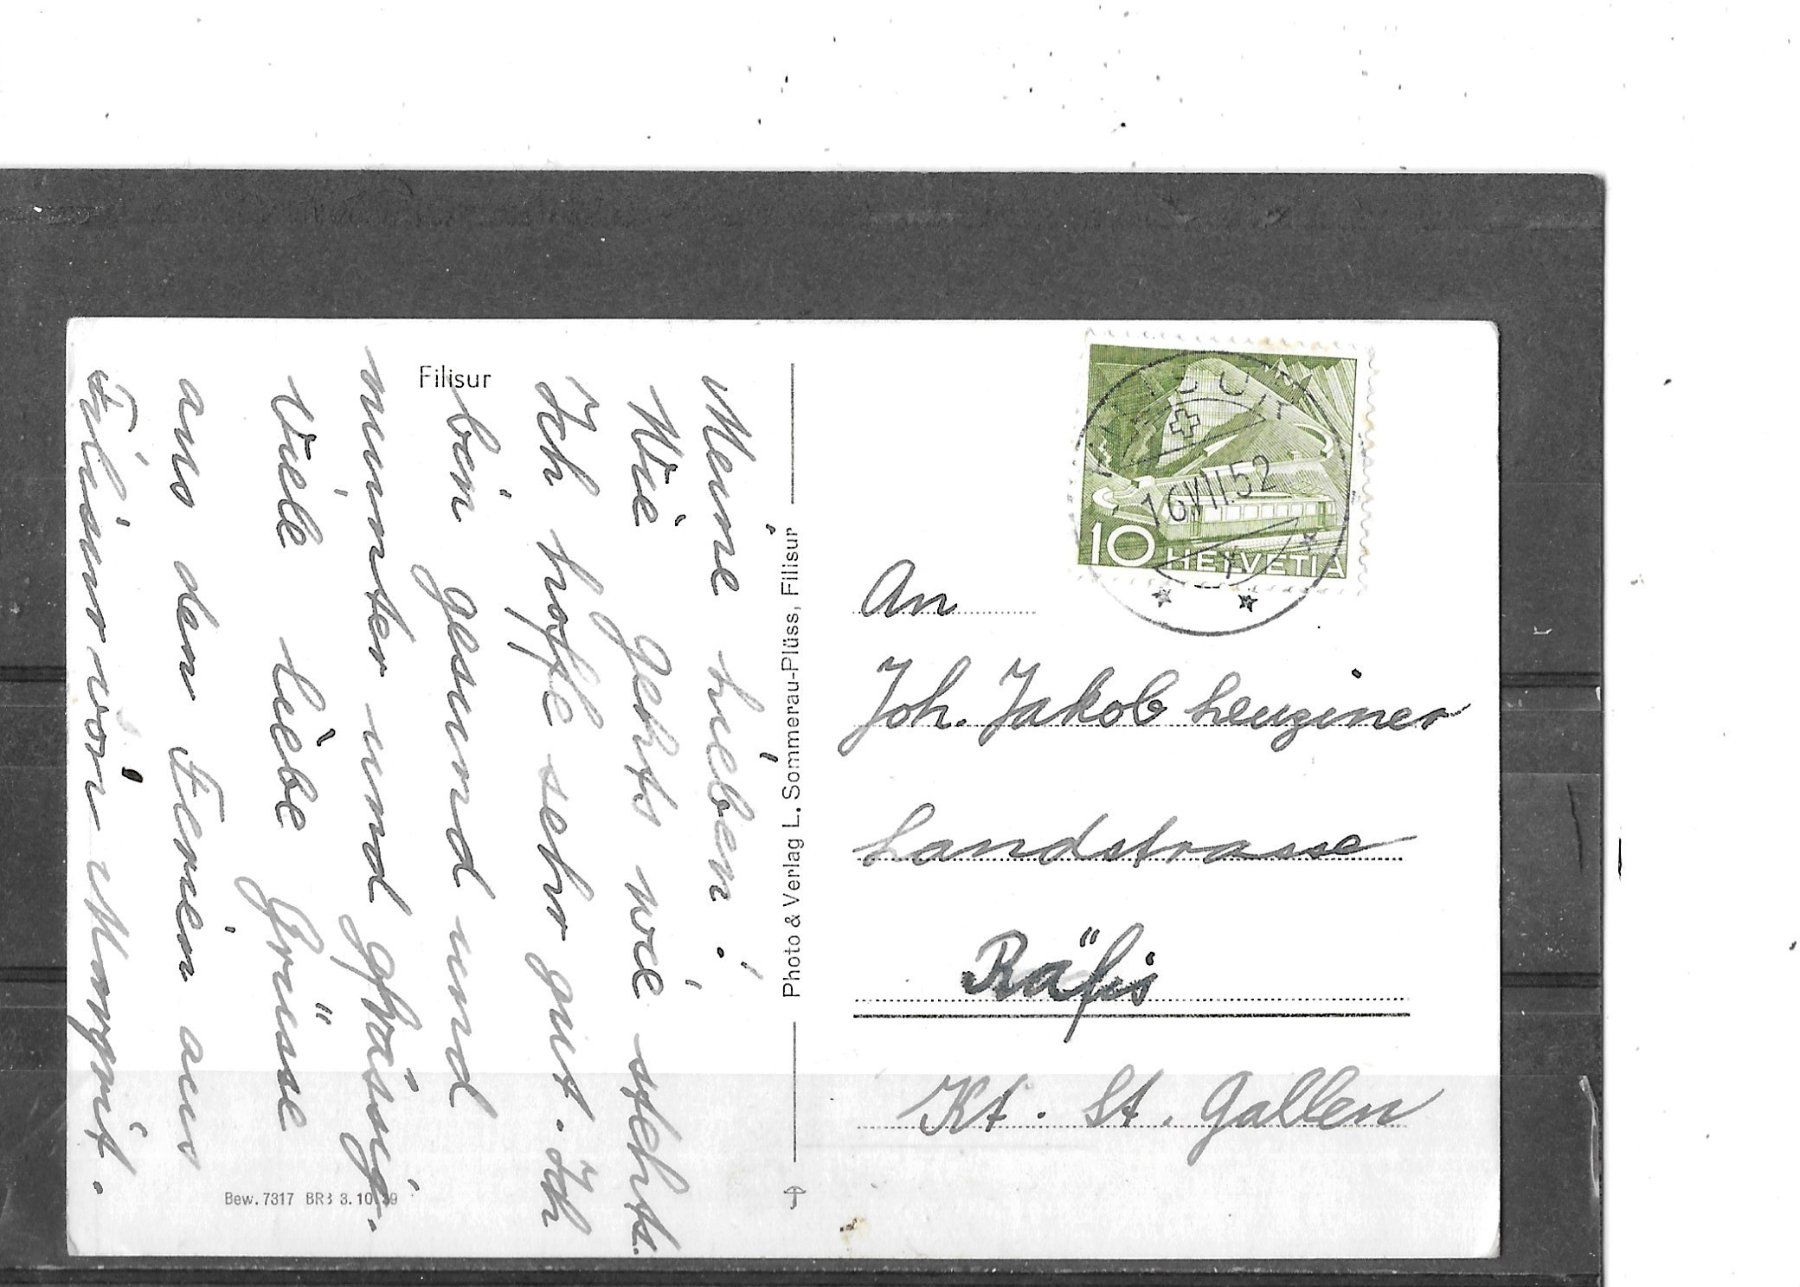 Filisur
Meine Lieben!
Wie gehts wie stehts.
Ich hoffe sehr gut. Ich
bin gesund und
munter und gfräsig.
Viele liebe Grüsse
aus den Ferien aus
Filisur von Margrit.
Bew. 7317 BRB 3.10.39
Photo & Verlag L. Sommerau-Plüss, Filisur
FILISUR
16.VII.52
10 HELVETIA
An
Joh. Jakob Leuziner
Landstrasse
Räfis
Kt. St. Gallen